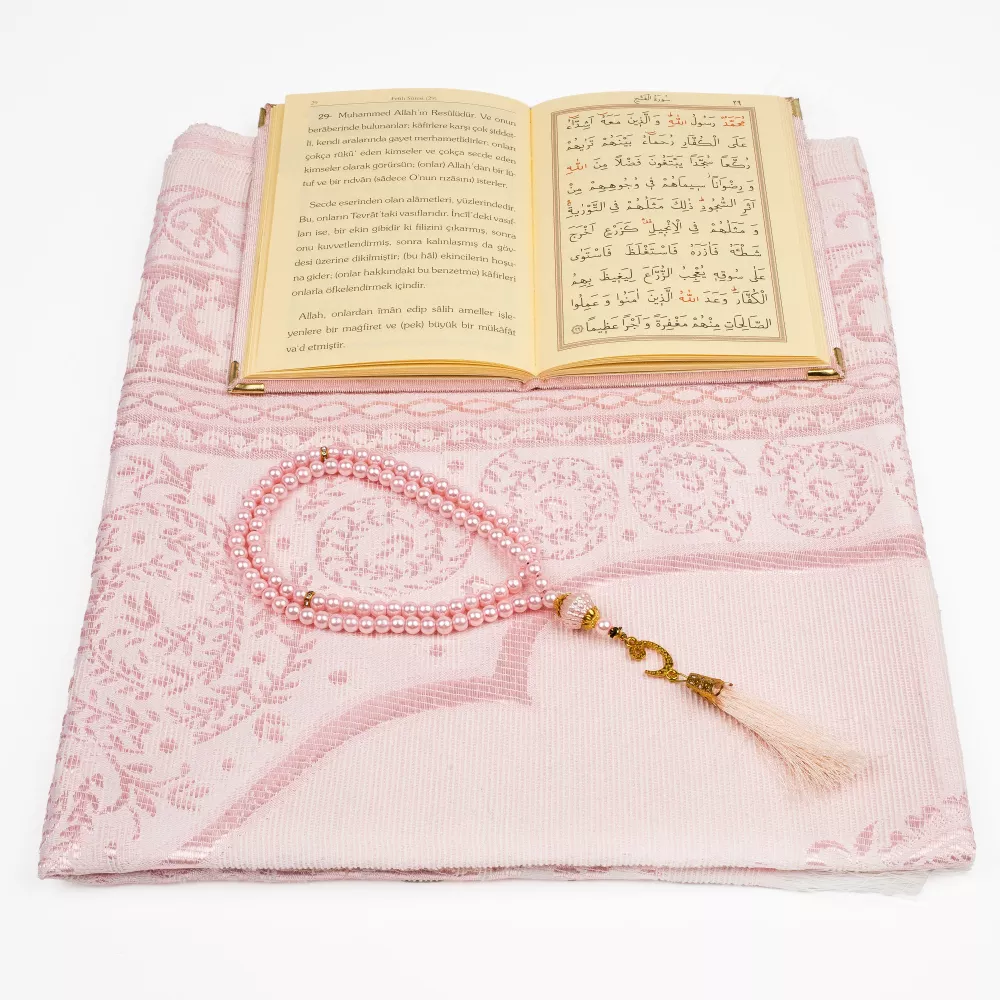 Fetih Sûresi (29)
29- Muhammed Allah'ın Resûlüdür. Ve onun
berâberinde bulunanlar; kâfirlere karşı çok şiddet-
li, kendi aralarında gayet merhametlidirler; onları
çokça rükû' eden kimseler ve çokça secde eden
kimseler olarak görürsün; (onlar) Allah'dan bir lü-
tuf ve bir rıdvân (sâdece O'nun rızâsını) isterler.
Secde eserinden olan alâmetleri, yüzlerindedir.
Bu, onların Tevrât'taki vasıflarıdır. İncîl'deki vasıf-
ları ise, bir ekin gibidir ki filizini çıkarmış, sonra
onu kuvvetlendirmiş, sonra kalınlaşmış da göv-
desi üzerine dikilmiştir; (bu hâl) ekincilerin hoşu-
na gider; (onlar hakkındaki bu benzetme) kâfirleri
onlarla öfkelendirmek içindir.
Allah, onlardan îmân edip sâlih ameller işle-
yenlere bir mağfiret ve (pek) büyük bir mükâfât
va'd etmiştir.
سُورَةُ الْفَتْحِ
٢٩
مُحَمَّدٌ رَسُولُ اللّٰهِ وَ الَّذٖينَ مَعَهُٓ اَشِدَّٓاءُ
عَلَى الْكُفَّارِ رُحَمَٓاءُ بَيْنَهُمْ تَرٰيهُمْ
رُكَّعًا سُجَّدًا يَبْتَغُونَ فَضْلًا مِنَ اللّٰهِ
وَ رِضْوَانًا سٖيمَاهُمْ فٖى وُجُوهِهِمْ مِنْ
اَثَرِ السُّجُودِ ذٰلِكَ مَثَلُهُمْ فِى التَّوْرٰيةِ
وَ مَثَلُهُمْ فِى الْاِنْجٖيلِ كَزَرْعٍ اَخْرَجَ
شَطْـَٔهُ فَاٰزَرَهُ فَاسْتَغْلَظَ فَاسْتَوٰى
عَلٰى سُوقِهٖ يُعْجِبُ الزُّرَّاعَ لِيَغٖيظَ بِهِمُ
الْكُفَّارَ وَعَدَ اللّٰهُ الَّذٖينَ اٰمَنُوا وَ عَمِلُوا
الصَّالِحَاتِ مِنْهُمْ مَغْفِرَةً وَ اَجْرًا عَظٖيمًا